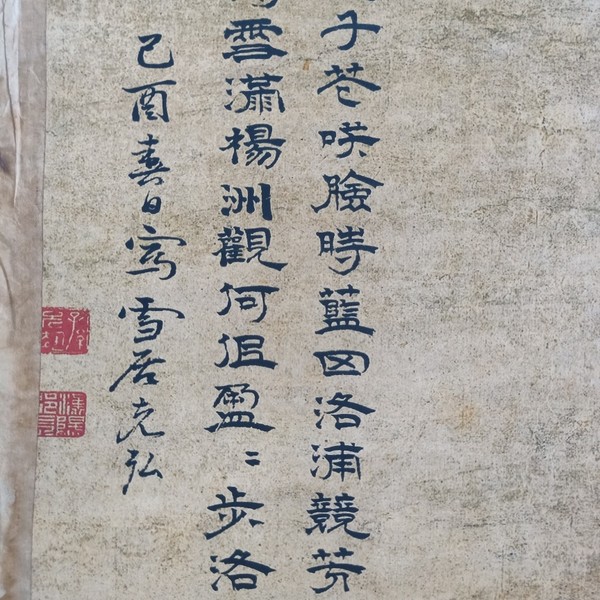 子花咲臉時藍田洛浦競芳
雪滿楊洲觀何但盈〻步洛
己酉春日寫雪居克弘